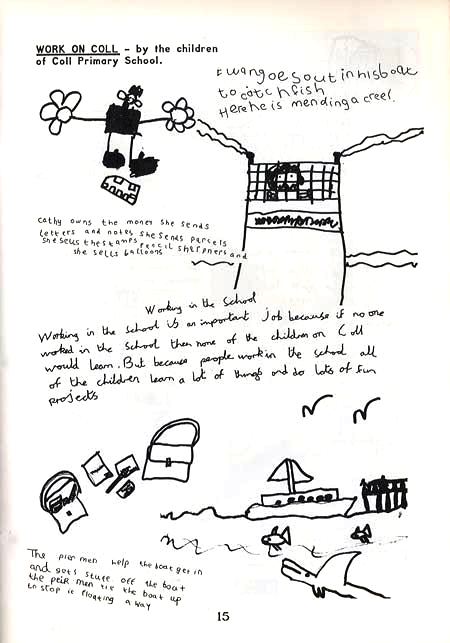 WORK ON COLL - by the children
of Coll Primary School.
Ewan goes out in his boat
to catch fish
Here he is mending a creel.
Cathy owns the money she sends
letters and notes she sends parcels
she sells the stamps pencil sherpners and
she sells balloons
Working in the School
Working in the school is an important job because if no one
worked in the school then none of the children on Coll
would learn. But because people work in the school all
of the children learn a lot of things and do lots of fun
projects
The pier men help the boat get in
and gets stuff off the boat
the peir men tie the boat up
to stop it floating away
15